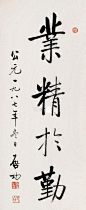 業精於勤
公元一九八七年冬日 啟功